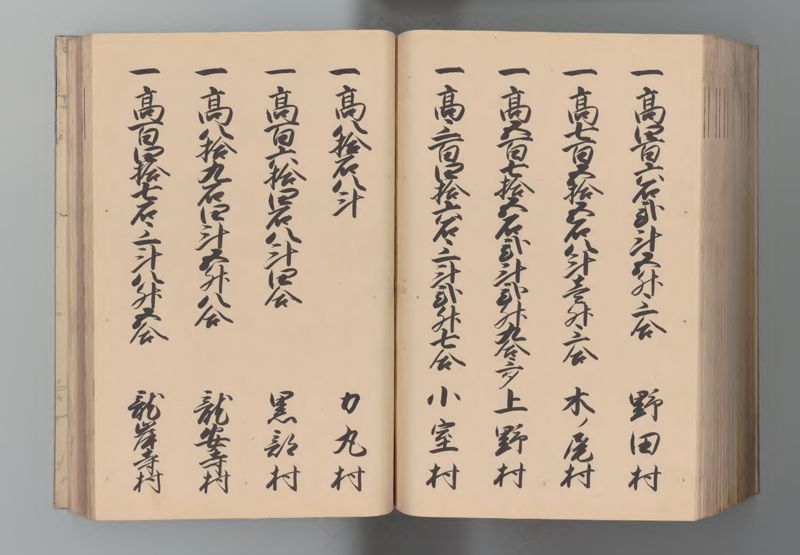 一高四百六石弐斗五升三合 野田村
一高七百五拾五石八斗壱升三合 木ノ尾村
一高五百七拾五石弐斗弐升九合三夕 上野村
一高三百四拾六石三斗弐升七合 小室村
一高八拾石八斗 力丸村
一高百六拾四石八斗四合 黒部村
一高八拾九石四斗五升八合 龍安寺村
一高百四拾七石三斗八升五合 龍岸寺村